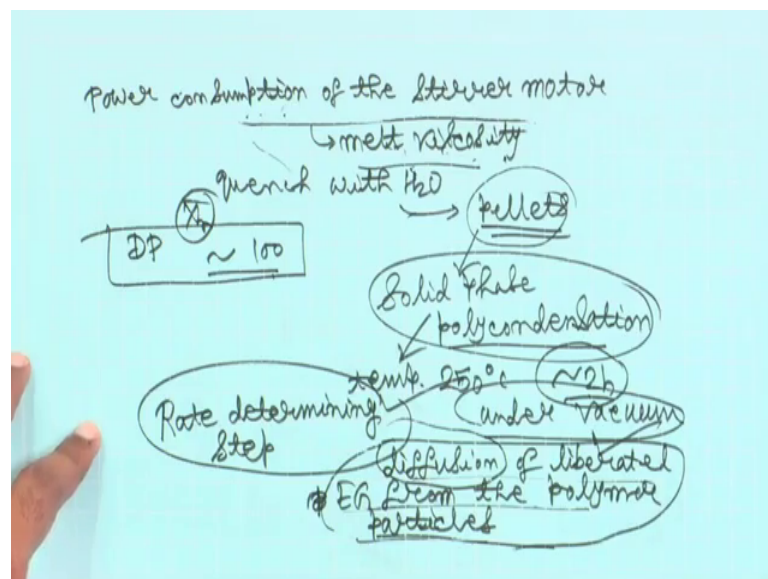 Power consumption of the stirrer motor
↳ melt viscosity
quench with H₂O → pellets
X̄n
DP ~ 100
Solid Phase
polycondensation
temp. 250°C ~2h
Rate determining
step
under vacuum
diffusion of liberated
EG from the polymer
particles